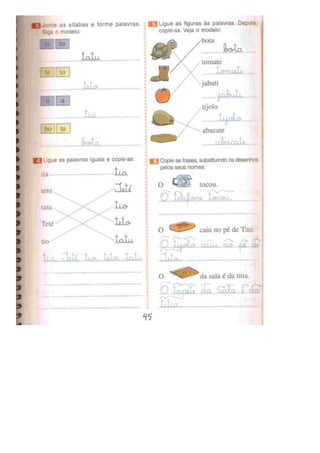 Junte as sílabas e forme palavras.
Siga o modelo:
ta to
tatu
te to
teto
ti a
tia
bo ta
bota
Ligue as palavras iguais e copie-as:
tia tia
teto Teté
tatu tio
Teté teto
tio tatu
tia, Teté, tio, teto, tatu
Ligue as figuras às palavras. Depois,
copie-as. Veja o modelo:
bota
bota
tomate
tomate
jabuti
jabuti
tijolo
tijolo
abacate
abacate
Copie as frases, substituindo os desenhos
pelos seus nomes:
O tocou.
O telefone tocou.
O caiu no pé de Tito.
O tijolo caiu no pé de
Tito.
O da sala é da titia.
O tapete da sala é da
titia.
45